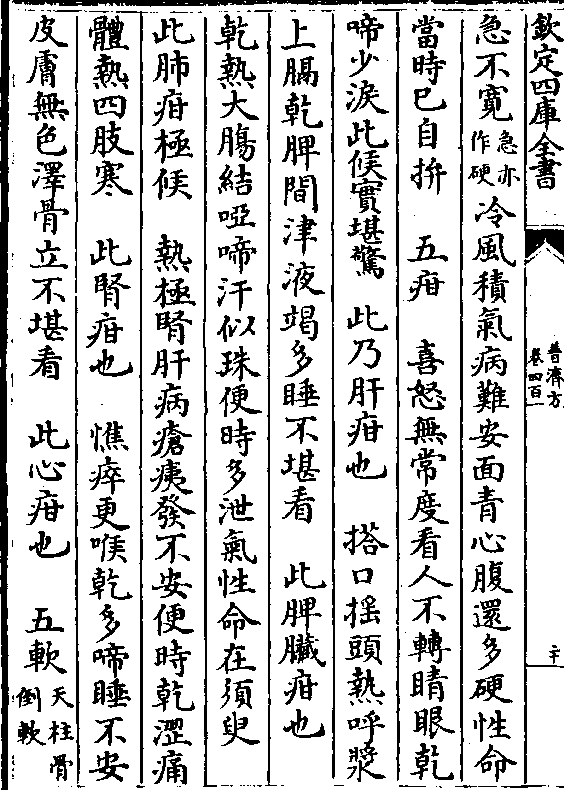 欽定四庫全書
普濟方
卷四百一
二十
急不寛急亦作硬冷風積氣病難安面青心腹還多硬性命
當時已自拚　五疳　喜怒無常度看人不轉睛眼乾
啼少淚此候實堪驚　此乃肝疳也　搭口揺頭熱呼漿
上膈乾脾間津液竭多睡不堪看　此脾臟疳也
乾熱大腸結啞啼汗似珠便時多泄氣性命在須臾
此肺疳極候　熱極腎肝病瘡痍發不安便時乾澀痛
體熱四肢寒　此腎疳也　憔瘁更喉乾多啼睡不安
皮膚無色澤骨立不堪看　此心疳也　五軟天柱骨倒軟